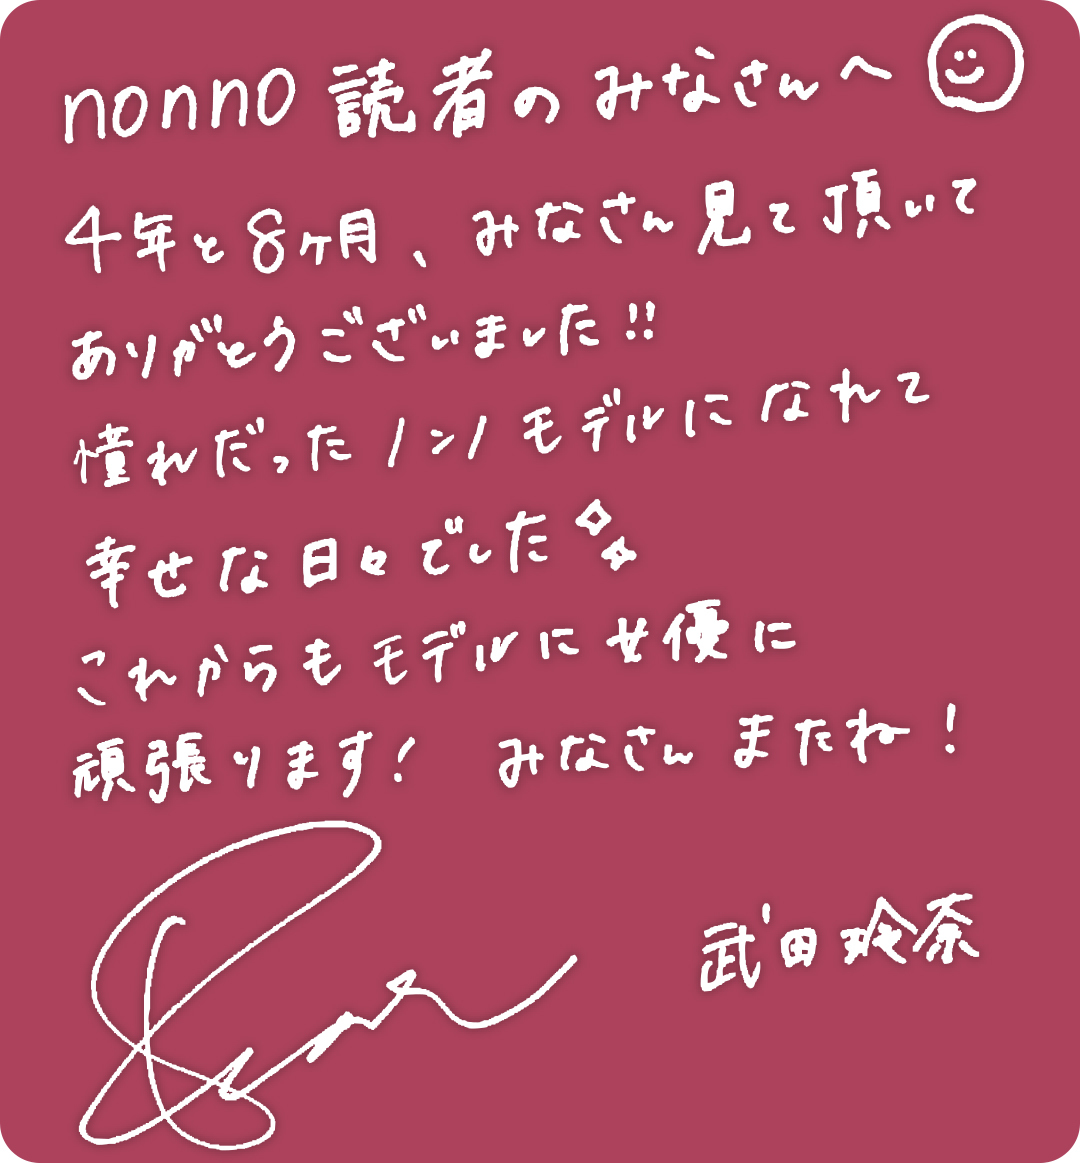 nonno 読者のみなさんへ
4年と8ヶ月、みなさん見て頂いて
ありがとうございました!!
憧れだったノンノモデルになれて
幸せな日々でした
これからもモデルに女優に
頑張ります! みなさんまたね!
武田玲奈